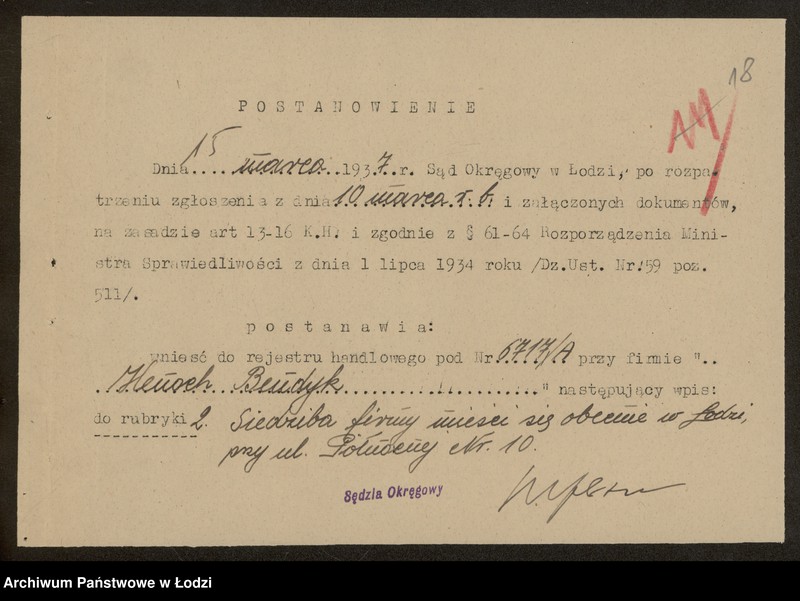 18
POSTANOWIENIE
Dnia 15 marca 1937 r. Sąd Okręgowy w Łodzi, po rozpa-
trzeniu zgłoszenia z dnia 10 marca r. b. i załączonych dokumentów,
na zasadzie art 13-16 K.H. i zgodnie z § 61-64 Rozporządzenia Mini-
stra Sprawiedliwości z dnia 1 lipca 1934 roku /Dz.Ust. Nr.59 poz.
511/.
postanawia:
wnieść do rejestru handlowego pod Nr 6717/A przy firmie "..
.Henoch Bendyk....................." następujący wpis:
do rubryki 2. Siedziba firmy mieści się obecnie w Łodzi,
przy ul. Południowej Nr. 10.
Sędzia Okręgowy
Archiwum Państwowe w Łodzi